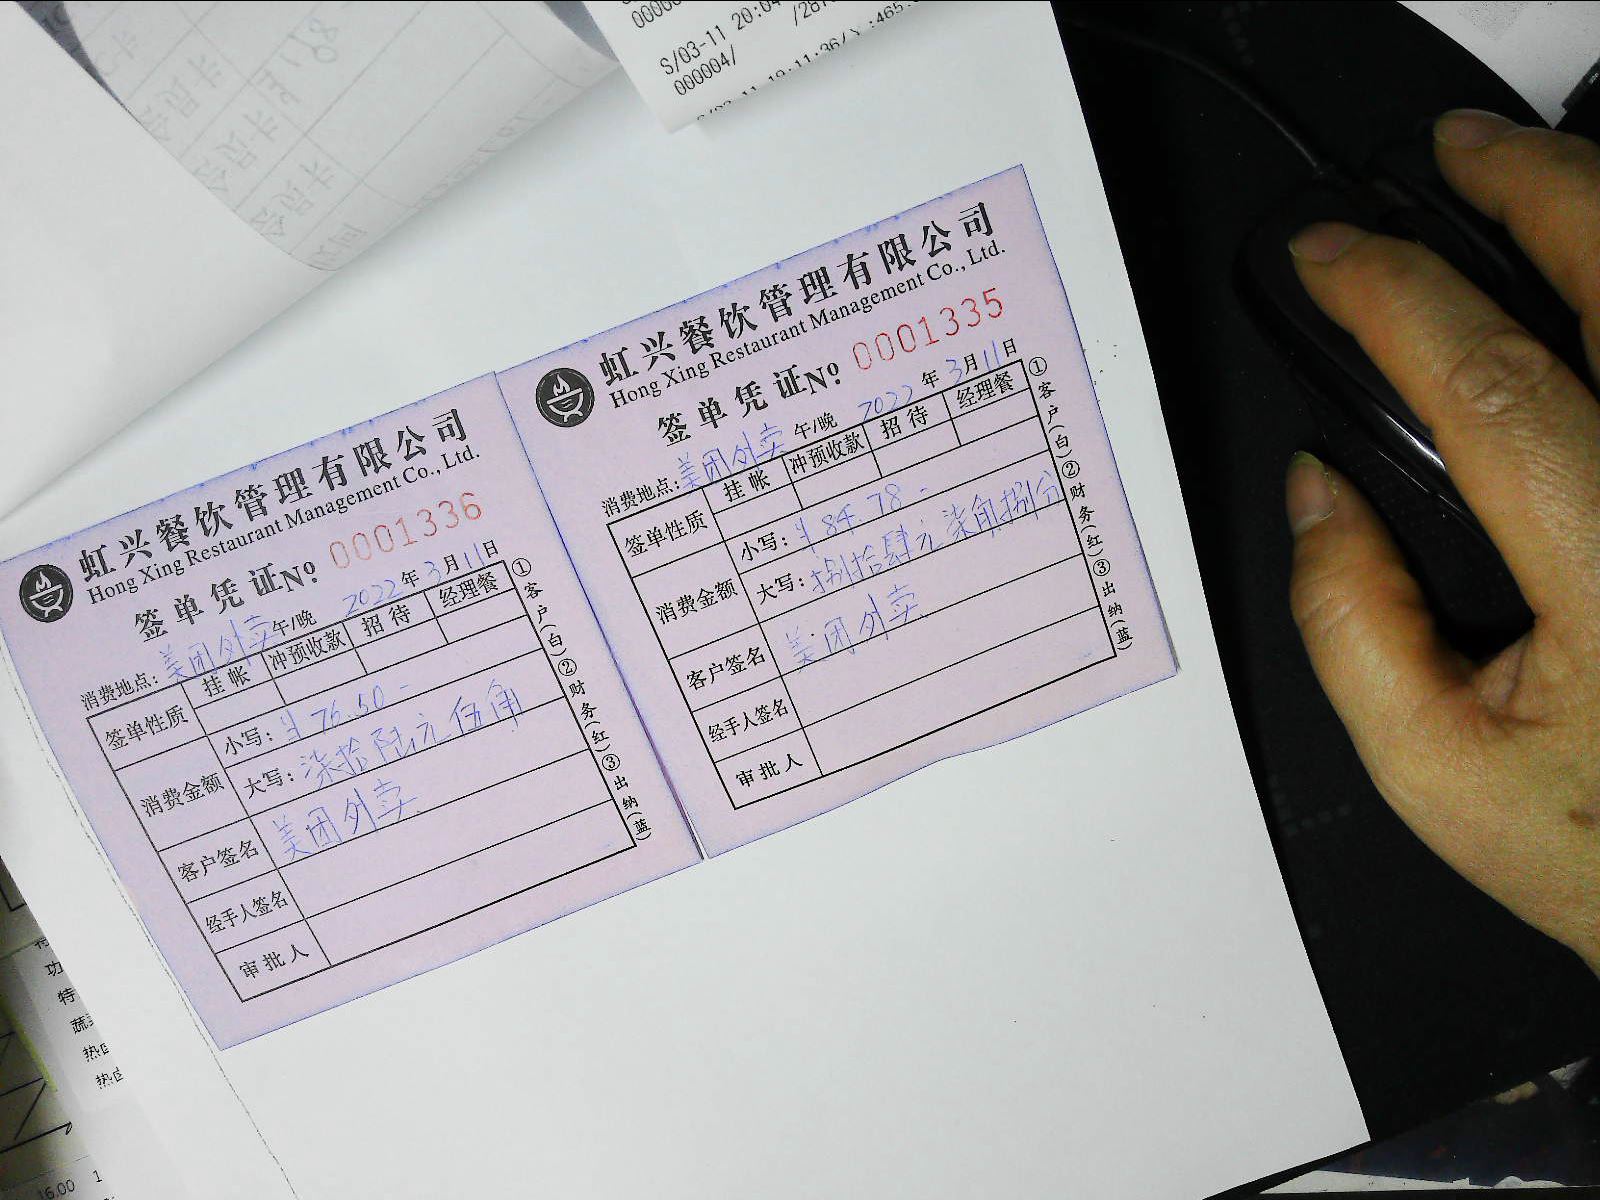 S/03-11 20:04
000004/
虹兴餐饮管理有限公司
Hong Xing Restaurant Management Co., Ltd.
签单凭证№ 0001336
2022年3月11日
消费地点：美团外卖 午/晚
签单性质 挂帐 冲预收款 招待 经理餐
消费金额 小写：¥76.50-
大写：柒拾陆元伍角
客户签名 美团外卖
经手人签名
审批人
①客户(白)②财务(红)③出纳(蓝)
虹兴餐饮管理有限公司
Hong Xing Restaurant Management Co., Ltd.
签单凭证№ 0001335
2022年3月11日
消费地点：美团外卖 午/晚
签单性质 挂帐 冲预收款 招待 经理餐
消费金额 小写：¥84.78-
大写：捌拾肆元柒角捌分
客户签名 美团外卖
经手人签名
审批人
①客户(白)②财务(红)③出纳(蓝)
功
特
蔬
热
热
16.00 1